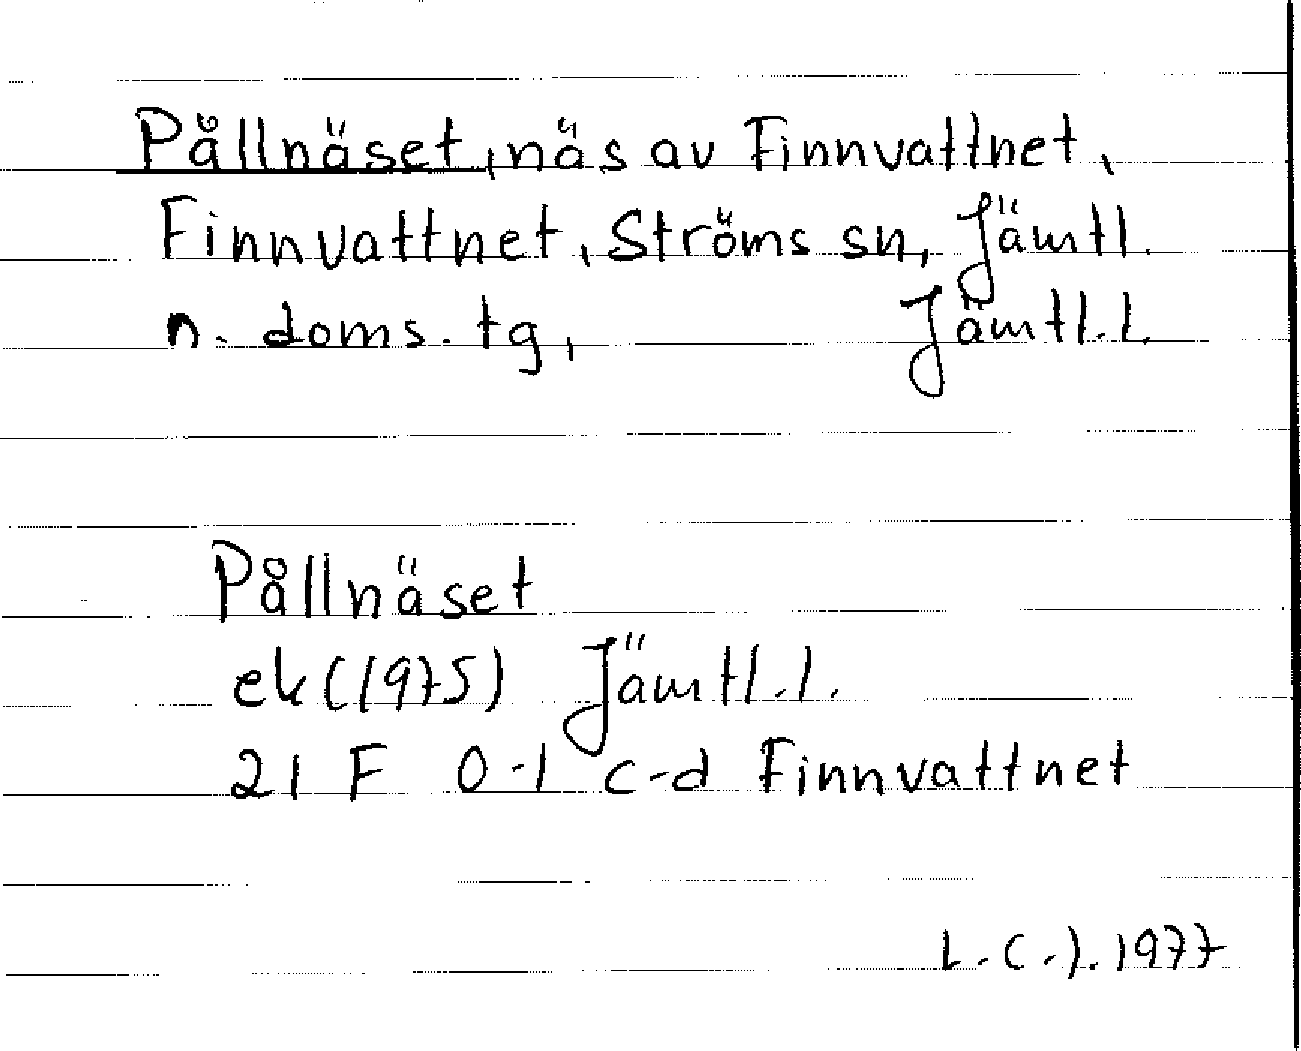 Pållnäset, näs av Finnvattnet,
Finnvattnet, Ströms sn, Jämtl.
n. doms. tg, Jämtl.l.
Pållnäset
ek (1975) Jämtl.l.
21 F 0-1 c-d Finnvattnet
L.(-). 1977